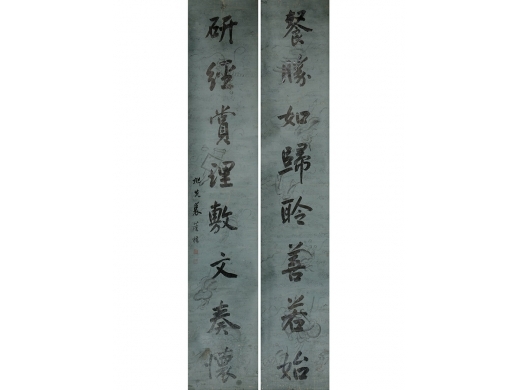 餐勝如歸聆善若始
研經賞理敷文奏懷